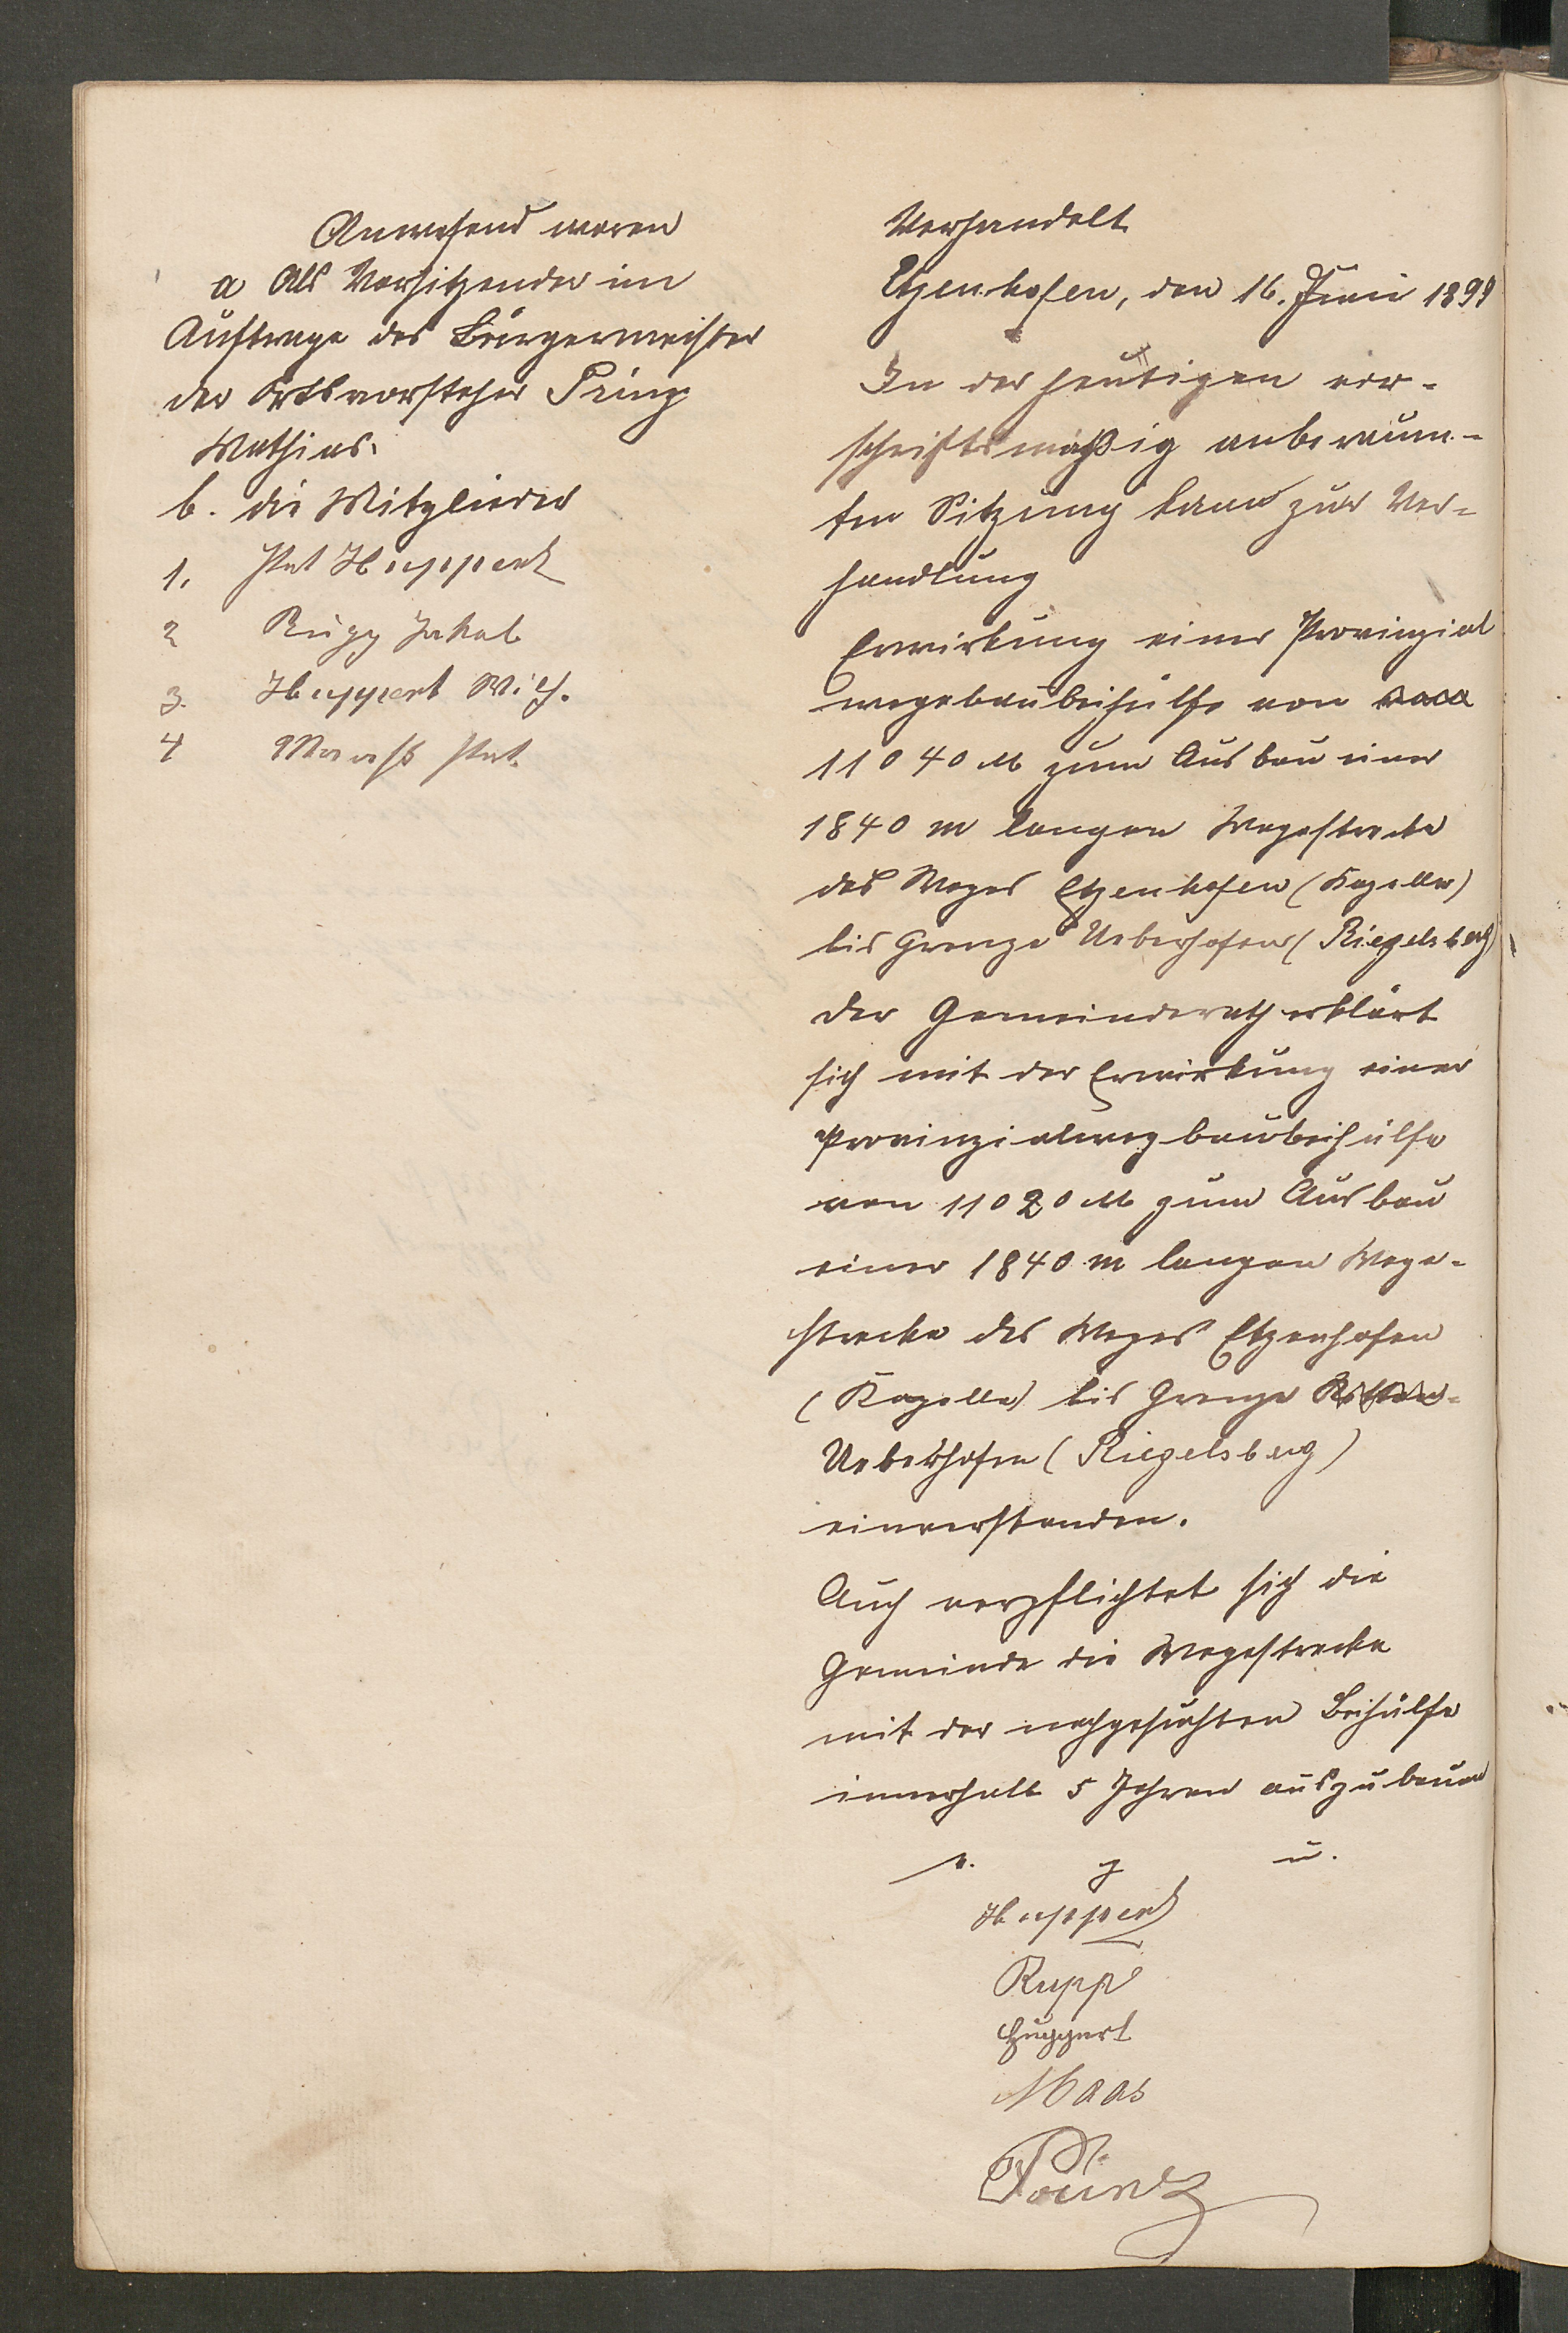 Anwesend waren
a Als Vorsitzender im
Auftrage des Bürgermeister
der Ortsvorsteher Prinz
Mathias.
b. die Mitglieder
1. Pet Huppert
2 Rupp Jakob
3. Huppert Mich.
4 Maass Pet.
Verhandelt
Etzenhofen, den 16. Juni 1899
In der heutigen vor-
schriftsmäßig anberaum-
ten Sitzung kam zur Ver-
handlung
Erwirkung einer Provinzial
wegebaubeihülfe von
11040 M zum Ausbau einer
1840 m langen Wegestrecke
des Weges Etzenhofen (Kapelle)
bis Grenze Ueberhofen (Riegelsberg)
Der Gemeinderath erklärt
sich mit der Erwirkung einer
Provinzialwegbaubeihülfe
von 11020 M zum Ausbau
einer 1840 m langen Wege-
strecke des Weges Etzenhofen
(Kapelle) bis Grenze
Ueberhofen (Riegelsberg)
einverstanden.
Auch verpflichtet sich die
Gemeinde die Wegestrecke
mit der nachgesuchten Beihülfe
innerhalb 5 Jahren auszubauen
v. g u.
Huppert
Rupp
Huppert
Maas
Prinz